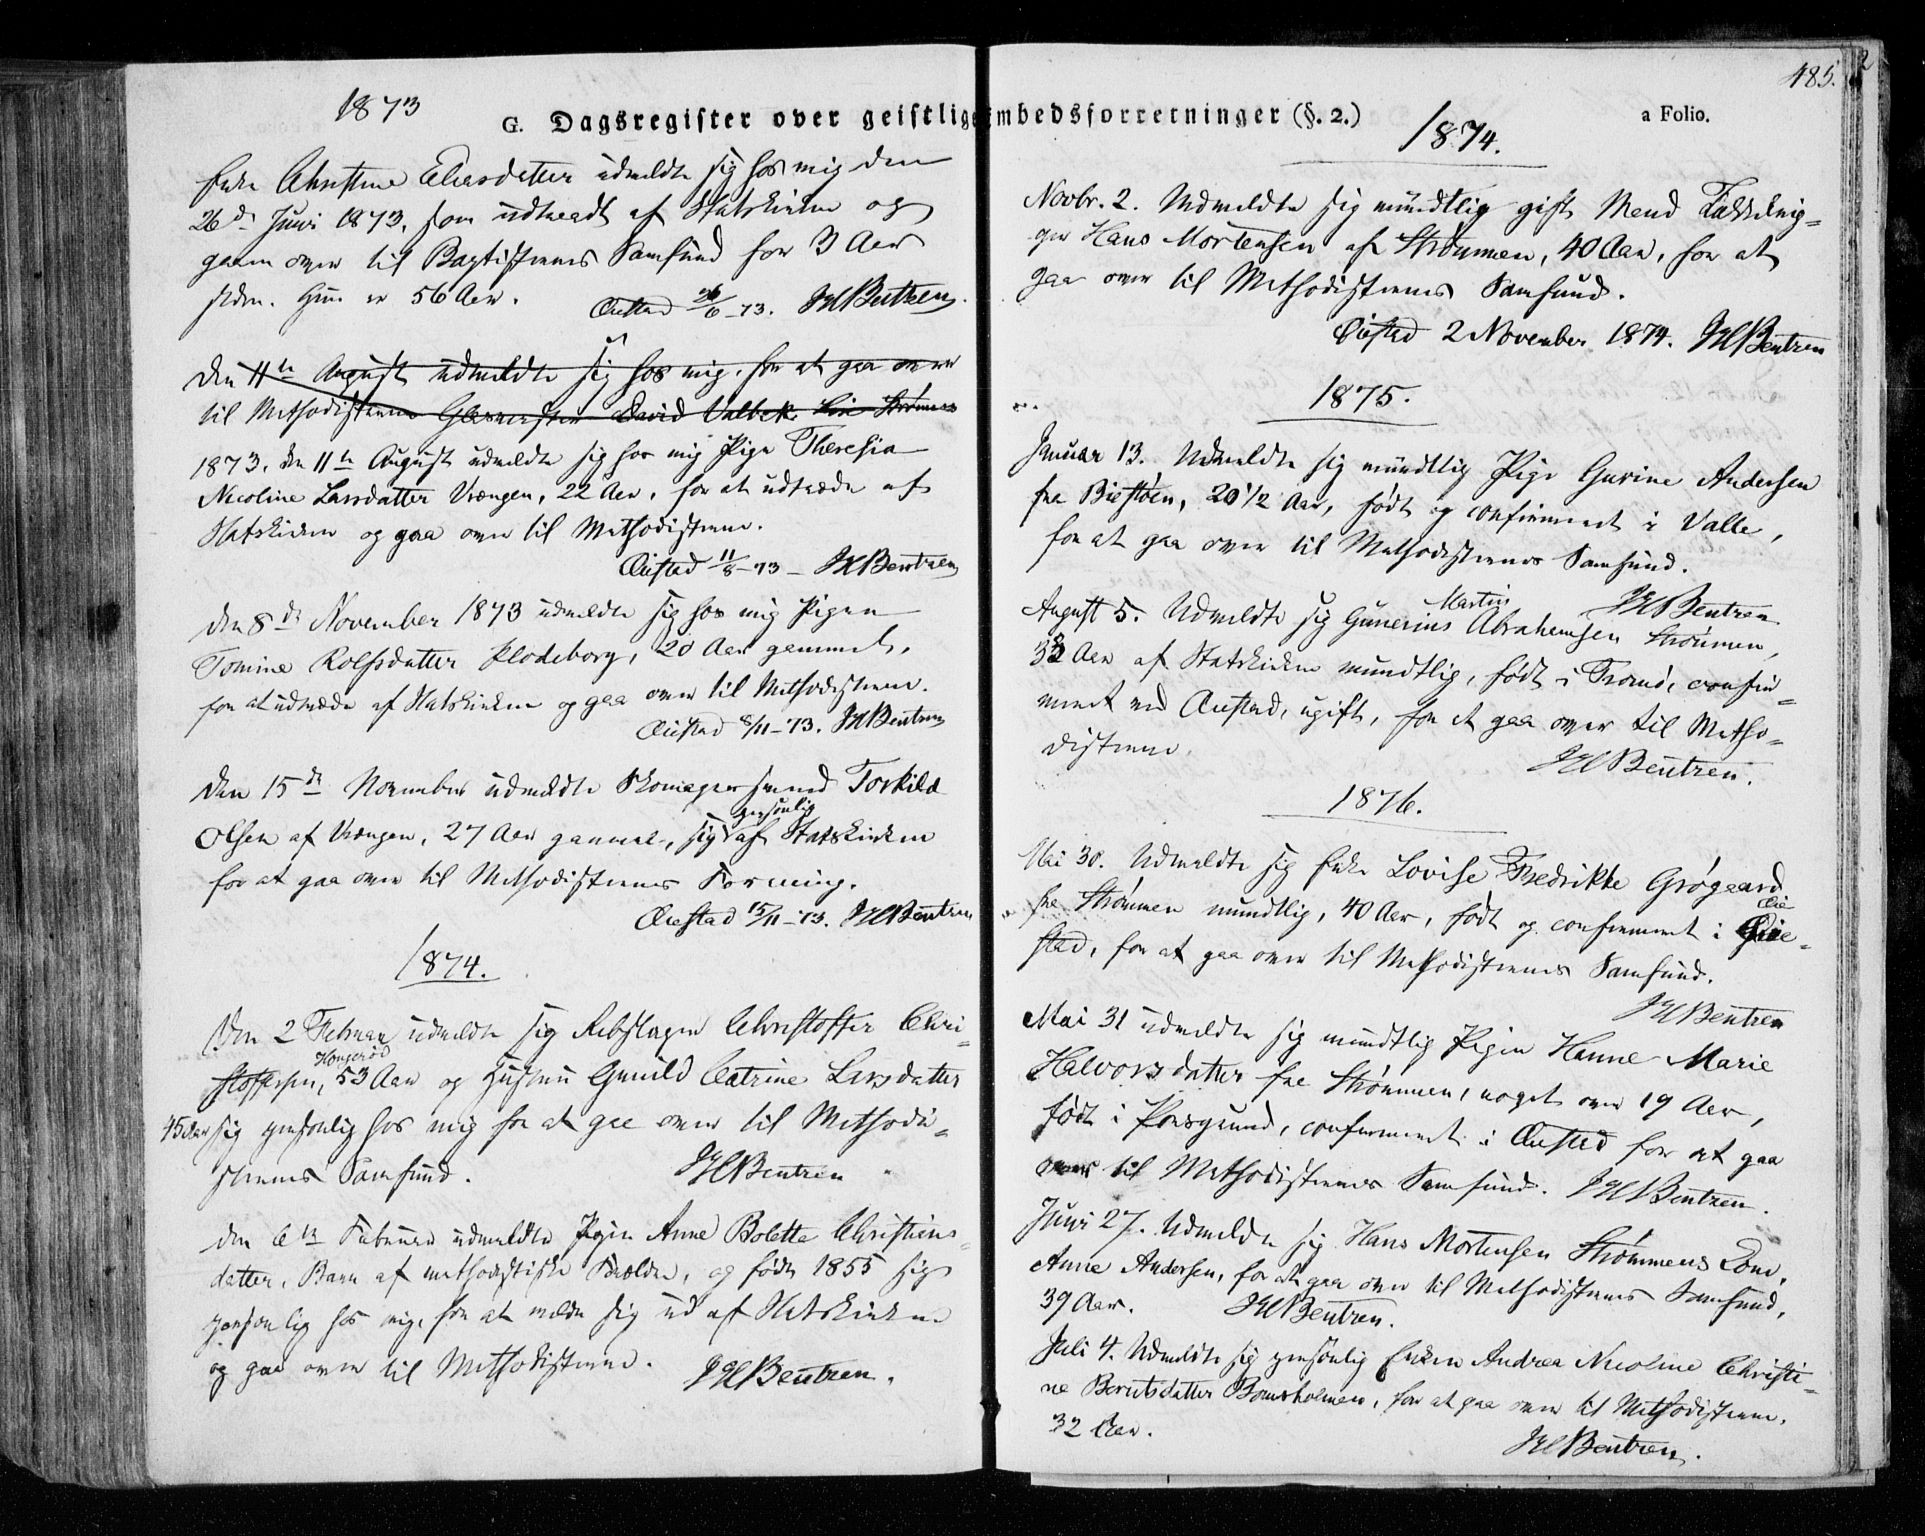 1873
G. Dagsregister over geistlige Embedsforretninger (§. 2.)
Enke Christine Eliasdatter udmeldte sig hos mig den
26de Juni 1873, som udtraadt af Statskirken og
gaaen over til Baptisternes Samfund for 3 Aar
siden. Hun er 56 Aar.
Øiestad 26/6-73. JHBentzen.
Den 11te August udmeldte sig hos mig, for at gaa over
til Methodisterne Glasmester David Valbek
1873, den 11te August udmeldte sig hos mig Pige Theresia
Nicoline Larsdatter Vrængen, 22 Aar, for at udtræde af
Statskirken og gaa over til Methodisterne.
Øiestad 11/8-73 - JHBentzen
Den 8de November 1873 udmeldte sig hos mig Pigen
Tomine Rolfsdatter Klodeborg, 20 Aar gammel,
for at udtræde af Statskirken og gaa over til Methodisterne.
Øiestad 8/11-73. JHBentzen
Den 15de November udmeldte Skomagersvend Torkild
Olsen af Vrængen, 27 Aar gammel, sig personlig af Statskirken
for at gaa over til Methodisternes Forening.
Øiestad 15/11-73. JHBentzen
1874.
Den 2 Februar udmeldte sig Rebslager Christoffer Chri-
stoffersen, Kongerød 53 Aar og Hustru Gunild Catrine Larsdatter
45 Aar sig personlig hos mig for at gaa over til Methodi-
sternes Samfund. JHBentzen
Den 6te Februar udmeldte Pigen Anne Bolette Christians-
datter, Barn af methodistiske Forældre, og født 1855 sig
personlig hos mig, for at melde sig ud af Statskirken
og gaa over til Methodisterne. JHBentzen.
485.
a Folio.
1874.
Novbr. 2. Udmeldte sig mundtlig gift Mand
Hans Mortensen af Strømmen, 40 Aar, for at
gaa over til Methodisternes Samfund.
Øiestad 2 November 1874. JHBentzen
1875.
Januar 13. Udmeldte sig mundtlig Pige Gurine Andersen
fra Biestøen, 20 1/2 Aar, født og confirmeret i Valle,
for at gaa over til Methodisternes Samfund.
JHBentzen
August 5. Udmeldte sig Gunerius Martin Abrahamsen Strømmen,
33 Aar af Statskirken mundtlig, født i Tromø, confir-
meret ved Øiestad, ugift, for at gaa over til Metho-
disterne.
JHBentzen.
1876.
Mai 30. Udmeldte sig Enke Lovise Fredrikke Grøgaard
fra Strømmen mundtlig, 40 Aar, født og confirmeret i Øie-
stad, for at gaa over til Methodisternes Samfund.
JHBentzen
Mai 31 udmeldte sig mundtlig Pigen Hanne Marie
Halvorsdatter fra Strømmen, noget over 19 Aar,
født i Porsgrund, confirmeret i Øiestad for at gaa
over til Methodisternes Samfund. JHBentzen.
Juni 27. Udmeldte sig Hans Mortensen Strømmens Kone,
Anne Andersen, for at gaa over til Methodisternes Samfund,
39 Aar. JHBentzen.
Juli 4. Udmeldte sig personlig Enken Andrea Nicoline Christi-
ne Berntsdatter Bomsholmen, for at gaa over til Methodisterne.
32 Aar.
JHBentzen.